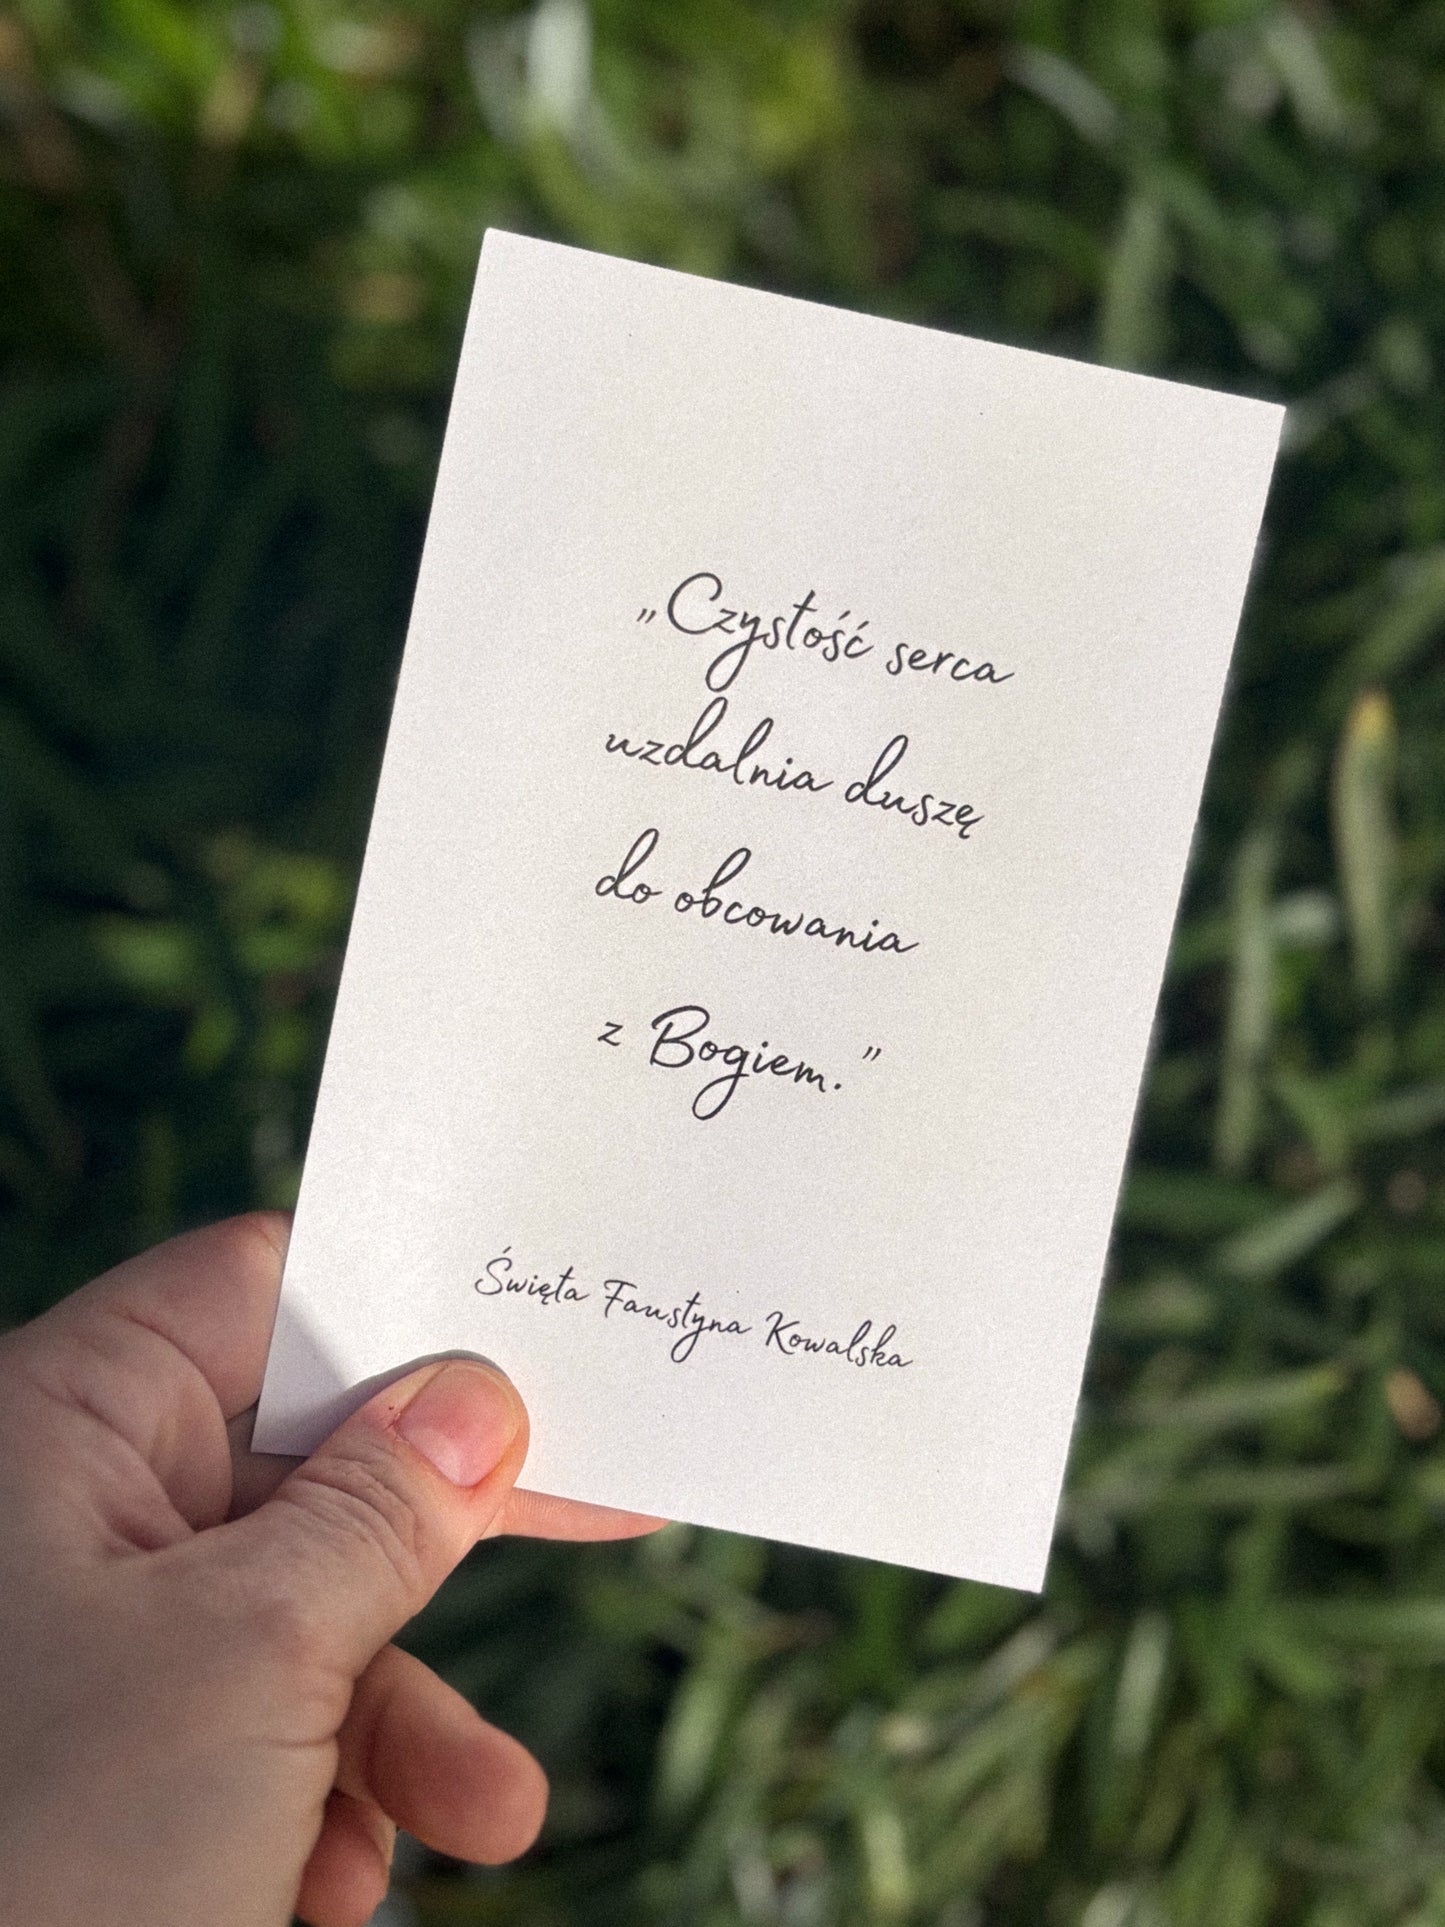 „Czystość serca
uzdalnia duszę
do obcowania
z Bogiem.”
Święta Faustyna Kowalska